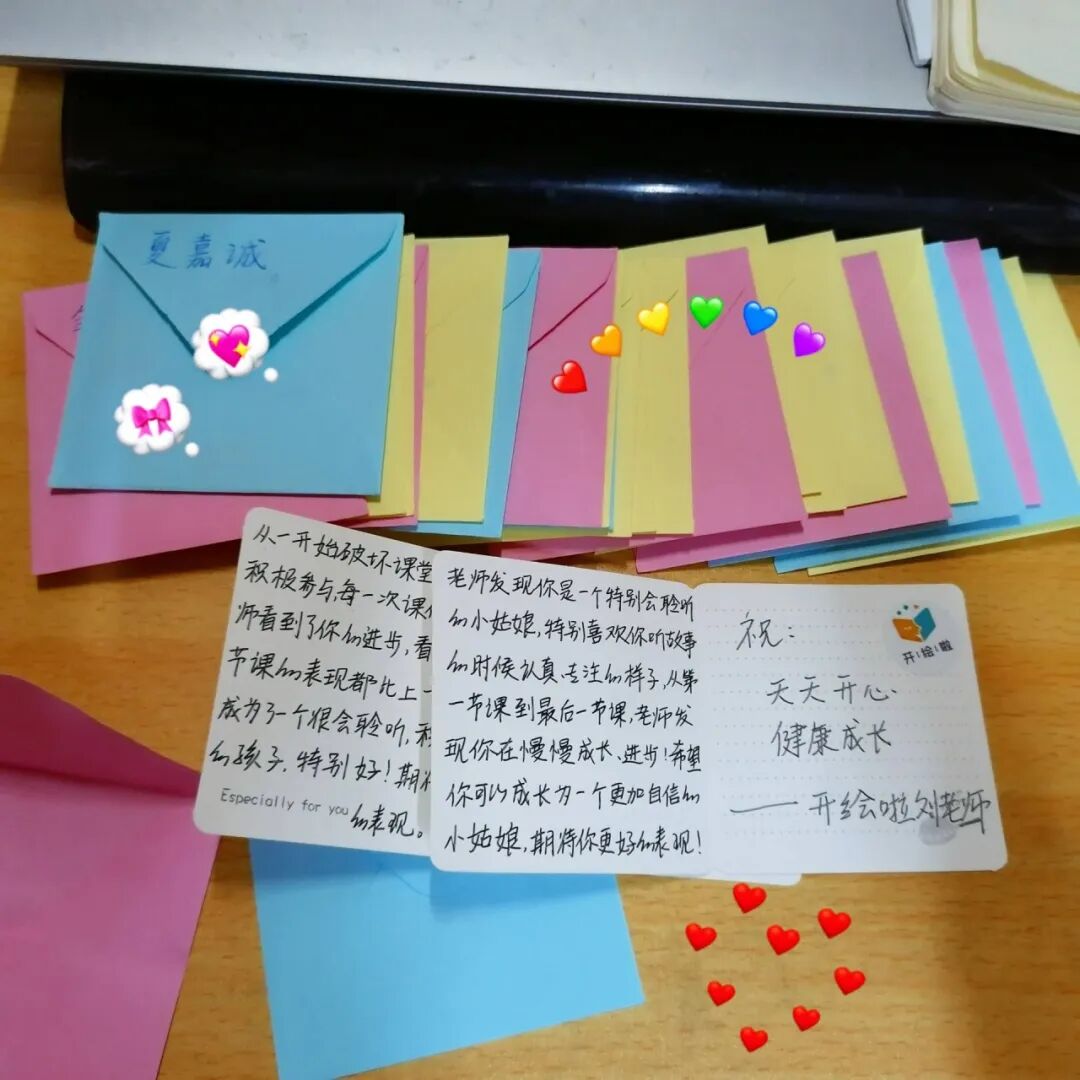 夏嘉诚
从一开始破坏课堂
积极参与,每一次课
师看到了你的进步,看
节课的表现都比上一
成为了一个很会聆听,积
的孩子,特别好!期待
Especially for you
的表现。
老师发现你是一个特别会聆听
的小姑娘,特别喜欢你听故事
的时候认真、专注的样子,从第
一节课到最后一节课,老师发
现你在慢慢成长、进步!希望
你可以成长为一个更加自信的
小姑娘,期待你更好的表现!
开!绘!啦
祝:
天天开心
健康成长
——开绘啦刘老师